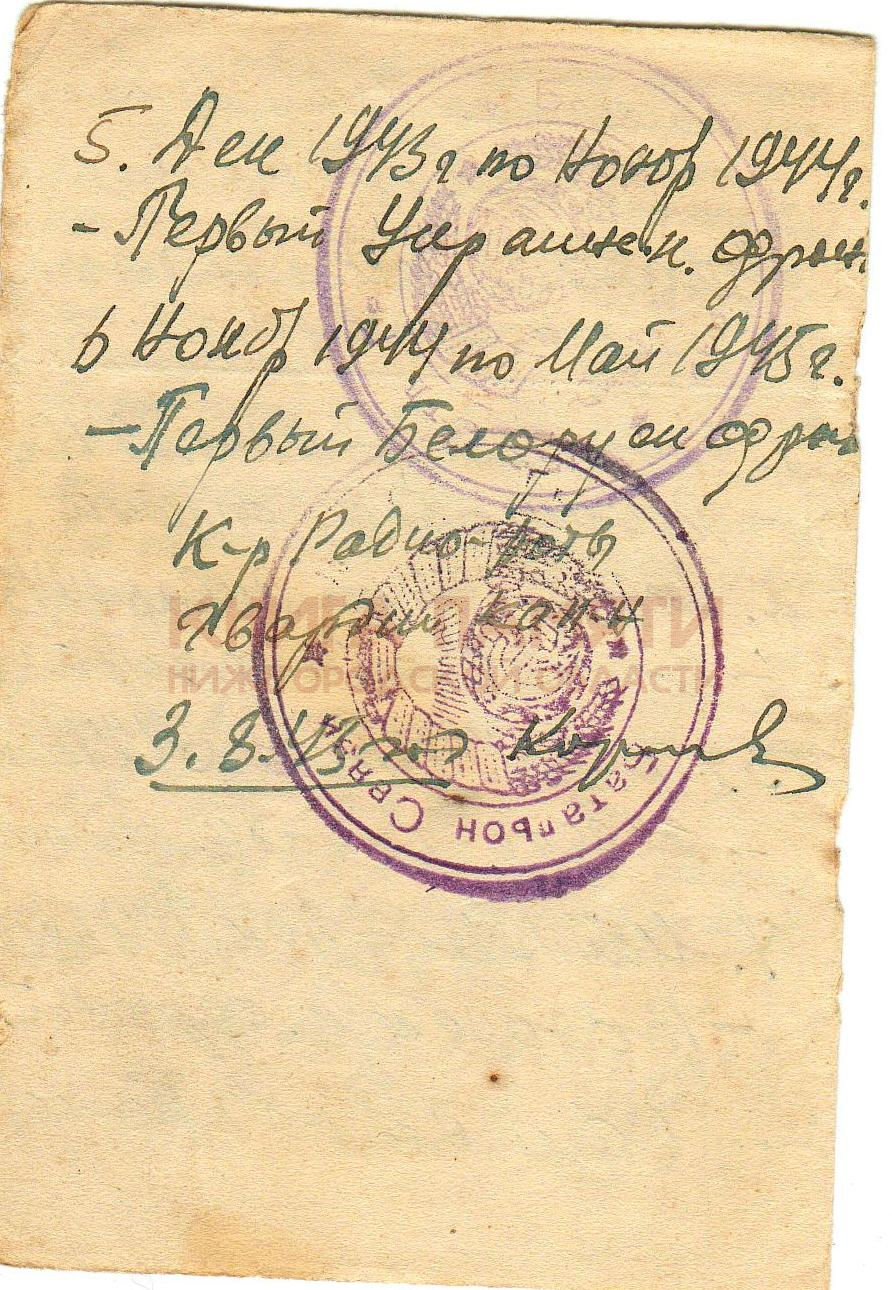 5. Дек 1943 г по Ноябр 1944 г.
- Первый Украинск. фрон
6 Ноябр 1944 по Май 1945 г.
- Первый Белорусск фрон
К-р Радио-роты
гвардии кап-н
3. 8. 45 г.
Батальон Связи
КНИГА ПАМЯТИ
НИЖЕГОРОДСКОЙ ОБЛАСТИ